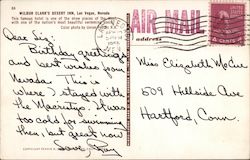 WILBUR CLARK'S DESERT INN, Las Vegas, Nevada
This famous hotel is one of the show places of the
with one of the nation's most beautiful swimming
Color photo by
AIR MAIL
address
Dear Sis:
Birthday greetings
and best wishes from
Nevada. This is
where I stayed with
the
too cold for swimming
then, but great now
Love,
Miss Elizabeth McCue
509 Hillside Ave
Hartford, Conn.